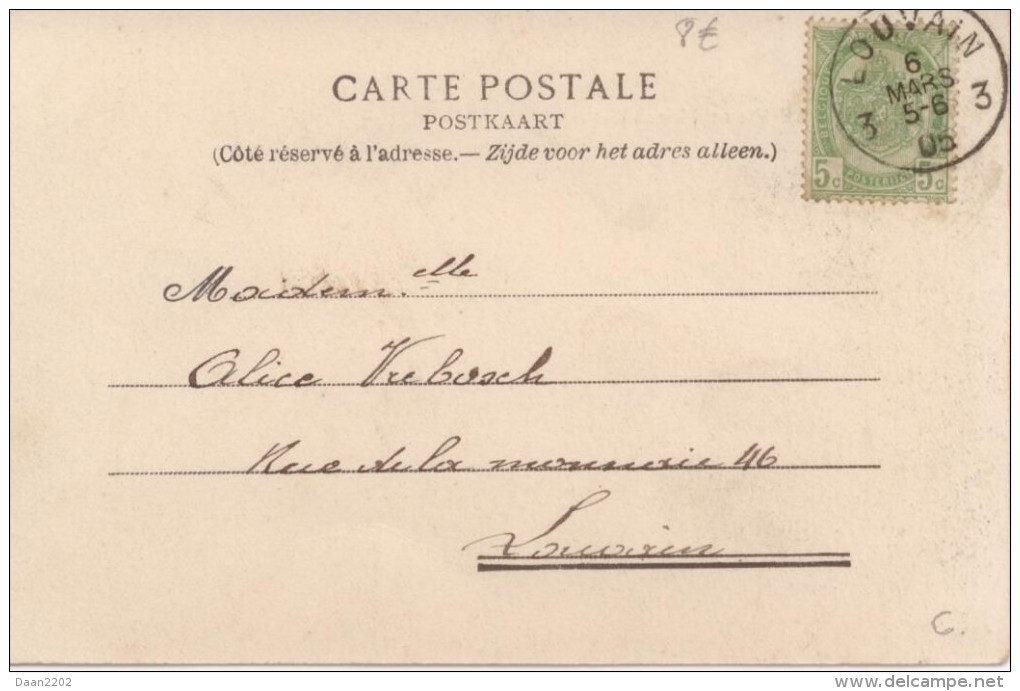 8€
CARTE POSTALE
POSTKAART
(Côté réservé à l'adresse.— Zijde voor het adres alleen.)
LOUVAIN
6
MARS
5-6
05
3 3
5c 5c
Mademelle
Alice Vrebosch
Rue de la monnaie 46
Louvain
6.
Daan2202
www.delcampe.net